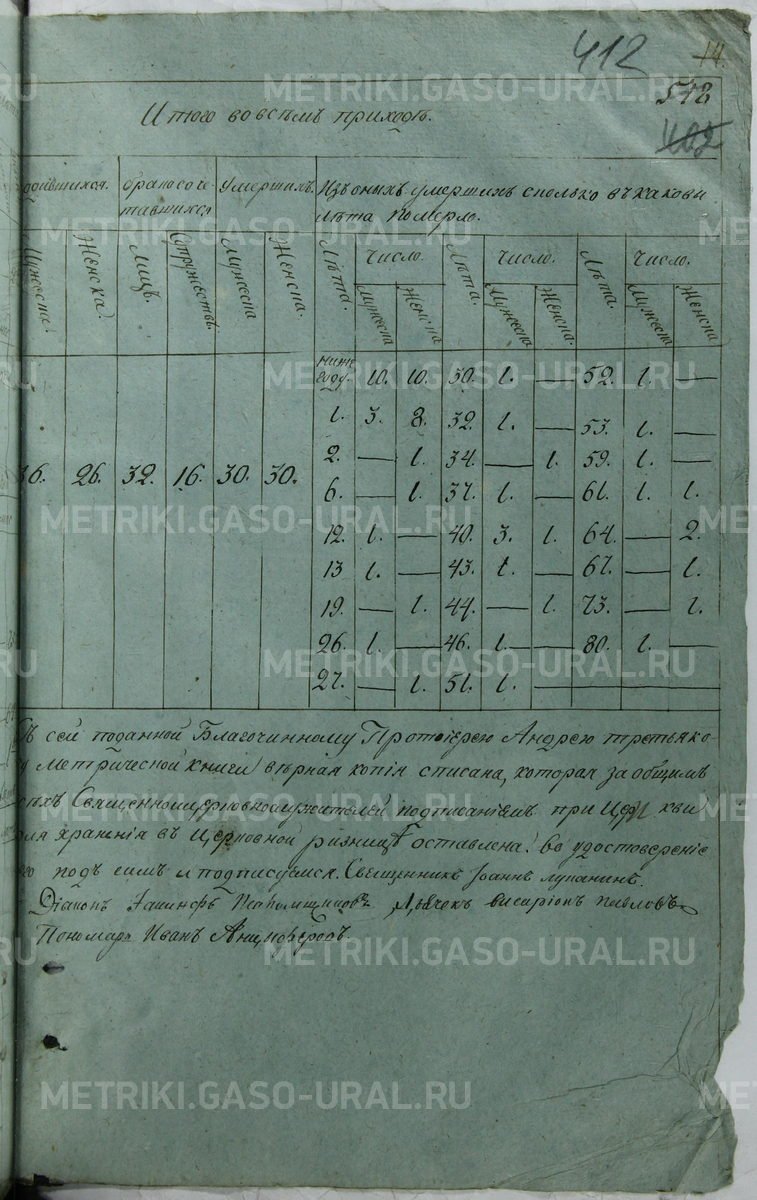 412
14
518
402
Итого во всѣмъ приходѣ.
одившихся. бракосоче умершихъ. Изъ оныхъ умершихъ сколько въ какови
тавшихся лѣта померло.
Мужеска. Женска. Лицъ. Супружествъ. Мужеска Женска. Лѣта. Число. Лѣта. Число. Лѣта. Число.
Мужеска Женска Мужеска Женска. Мужеска Женска
ниже году. 10. 10. 30. 1. — 52. 1. —
1. 3. 8. 32. 1. — 53. 1. —
2. — 1. 34. — 1. 59. 1. —
36. 26. 32. 16. 30. 30.
6. — 1. 37. 1. — 61. 1. 1.
12. 1. — 40. 3. 1. 64. — 2.
13 1. — 43. 1. — 67. — 1.
19. — 1. 44. — 1. 73. — 1.
26. 1. — 46. 1. — 80. 1. —
27. — 1. 51. 1. —
Съ сей поданной Благочинному Протоіерею Андрею третьяко
ву метрической книги вѣрная копія списана, которая за общимъ
всѣхъ Священноцерковнослужителей подписаніемъ при Церкви
для храненія въ Церковной ризницѣ оставлена. Во удостовереніе
чего подъ симъ и подписуемся. Священникъ Іоаннъ Лупанинъ.
Діаконъ Дьячокъ Висаріонъ Павловъ
Пономарь Иванъ Анциферовъ.
METRIKI.GASO-URAL.RU